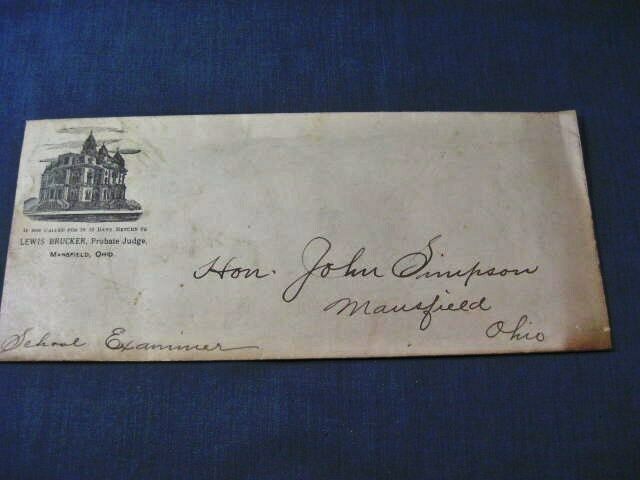 IF NOT CALLED FOR IN 10 DAYS RETURN TO
LEWIS BRUCKER, Probate Judge,
MANSFIELD, OHIO.
Hon. John Simpson
Mansfield
Ohio
School Examiner